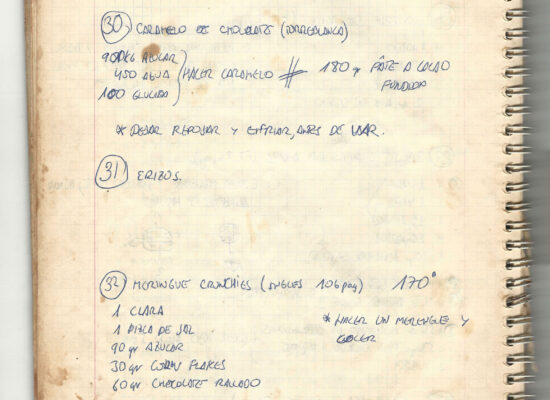 30 CARAMELO DE CHOCOLATE (TORREBLANCA)
900 AZUCAR
450 AGUA HACER CARAMELO # 180 gr PÂTE A CACAO
100 GLUCOSA FUNDIDA
* DEJAR REPOSAR Y ENFRIAR, ANTES DE USAR.
31 ERIZOS.
32 MERINGUE CRUNCHIES (INGLES 106 pag) 170°
1 CLARA
1 PIZCA DE SAL * HACER UN MERENGUE Y
90 gr AZUCAR COCER
30 gr CORN FLAKES
60 gr CHOCOLATE RALLADO